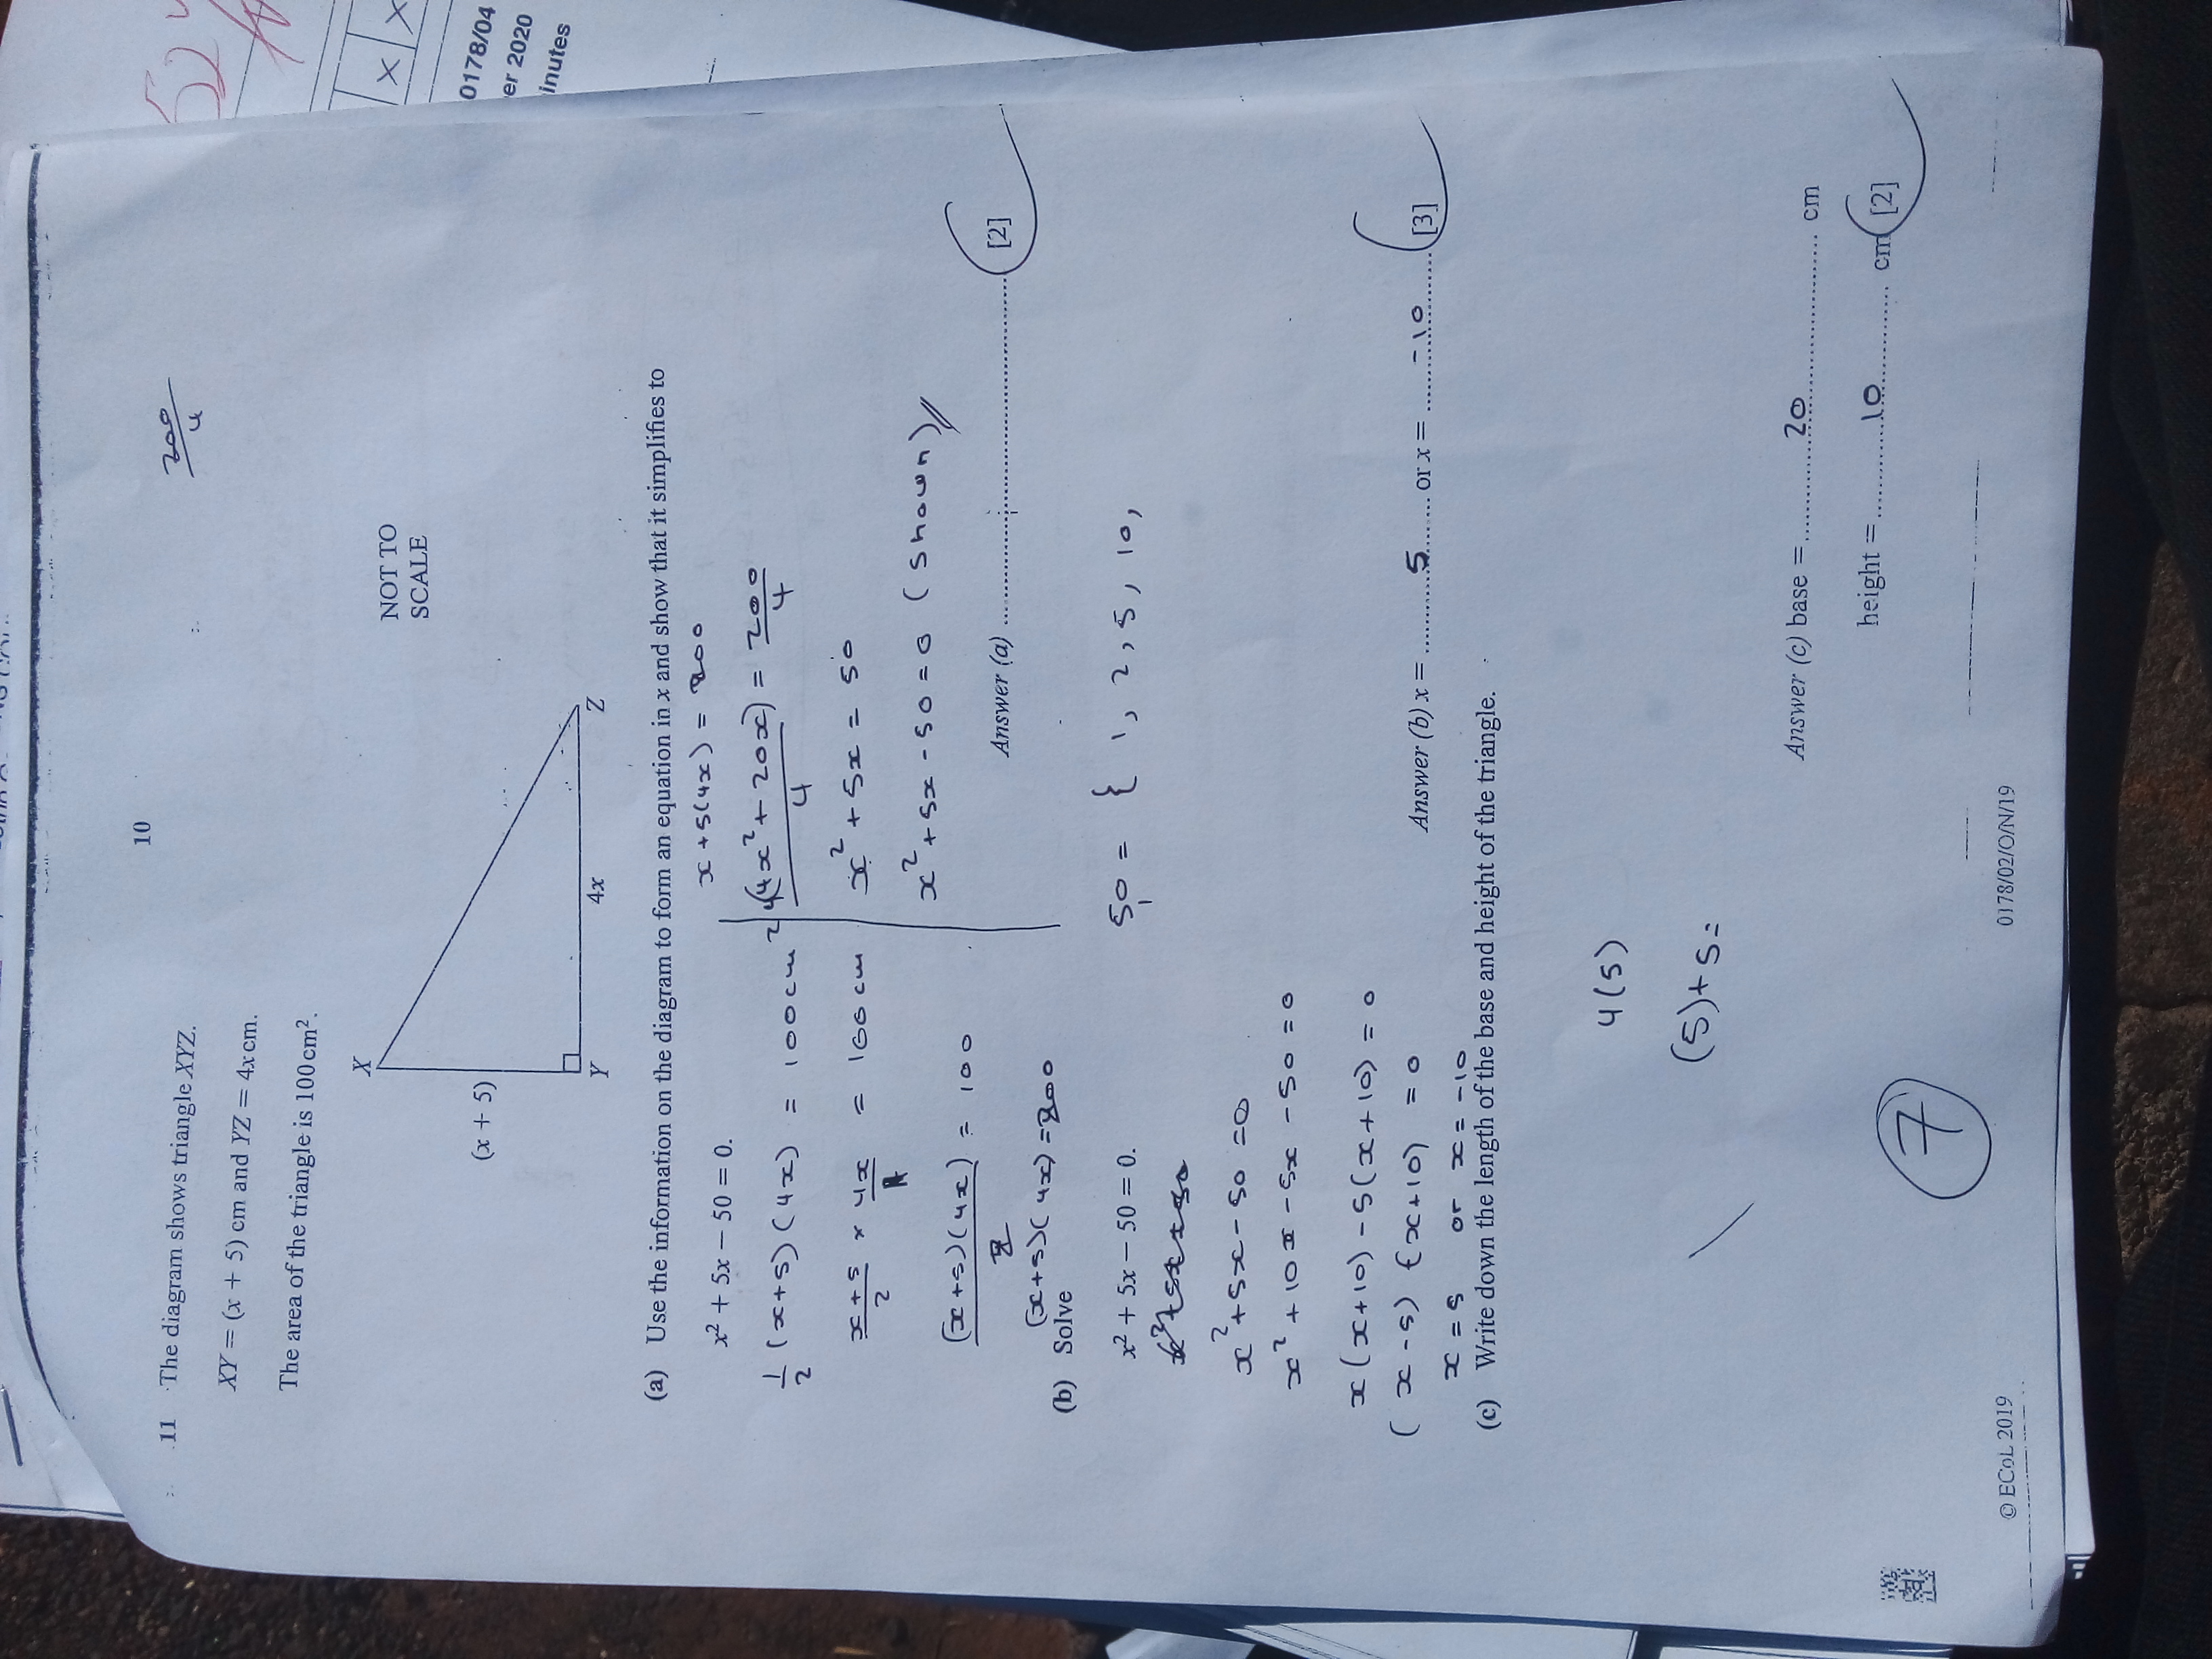 10
11 The diagram shows triangle XYZ.
200
4
XY = (x + 5) cm and YZ = 4x cm.
The area of the triangle is 100 cm².
X
NOT TO
SCALE
(x + 5)
Y
4x
Z
(a) Use the information on the diagram to form an equation in x and show that it simplifies to
x² + 5x − 50 = 0.
1/2 (x+5)(4x) = 100cm²
x+5/2 × 4x/1 = 100 cm
(x+5)(4x)/2 = 100
(x+5)(4x) = 200
x+5(4x) = 200
(4x²+20x)/4 = 200/4
x²+5x = 50
x²+5x-50=0 (shown)//
Answer (a) [2]
(b) Solve
x² + 5x − 50 = 0.
50 = { 1, 2, 5, 10,
x²+5x-50=0
x²+10x-5x-50=0
x(x+10)-5(x+10)=0
(x-5)(x+10)=0
x=5 or x=-10
Answer (b) x = 5 or x = -10 [3]
(c) Write down the length of the base and height of the triangle.
4(5)
(5)+5=
Answer (c) base = 20 cm
height = 10 cm [2]
7
© ECoL 2019
0178/02/O/N/19
52%
x x
0178/04
er 2020
inutes